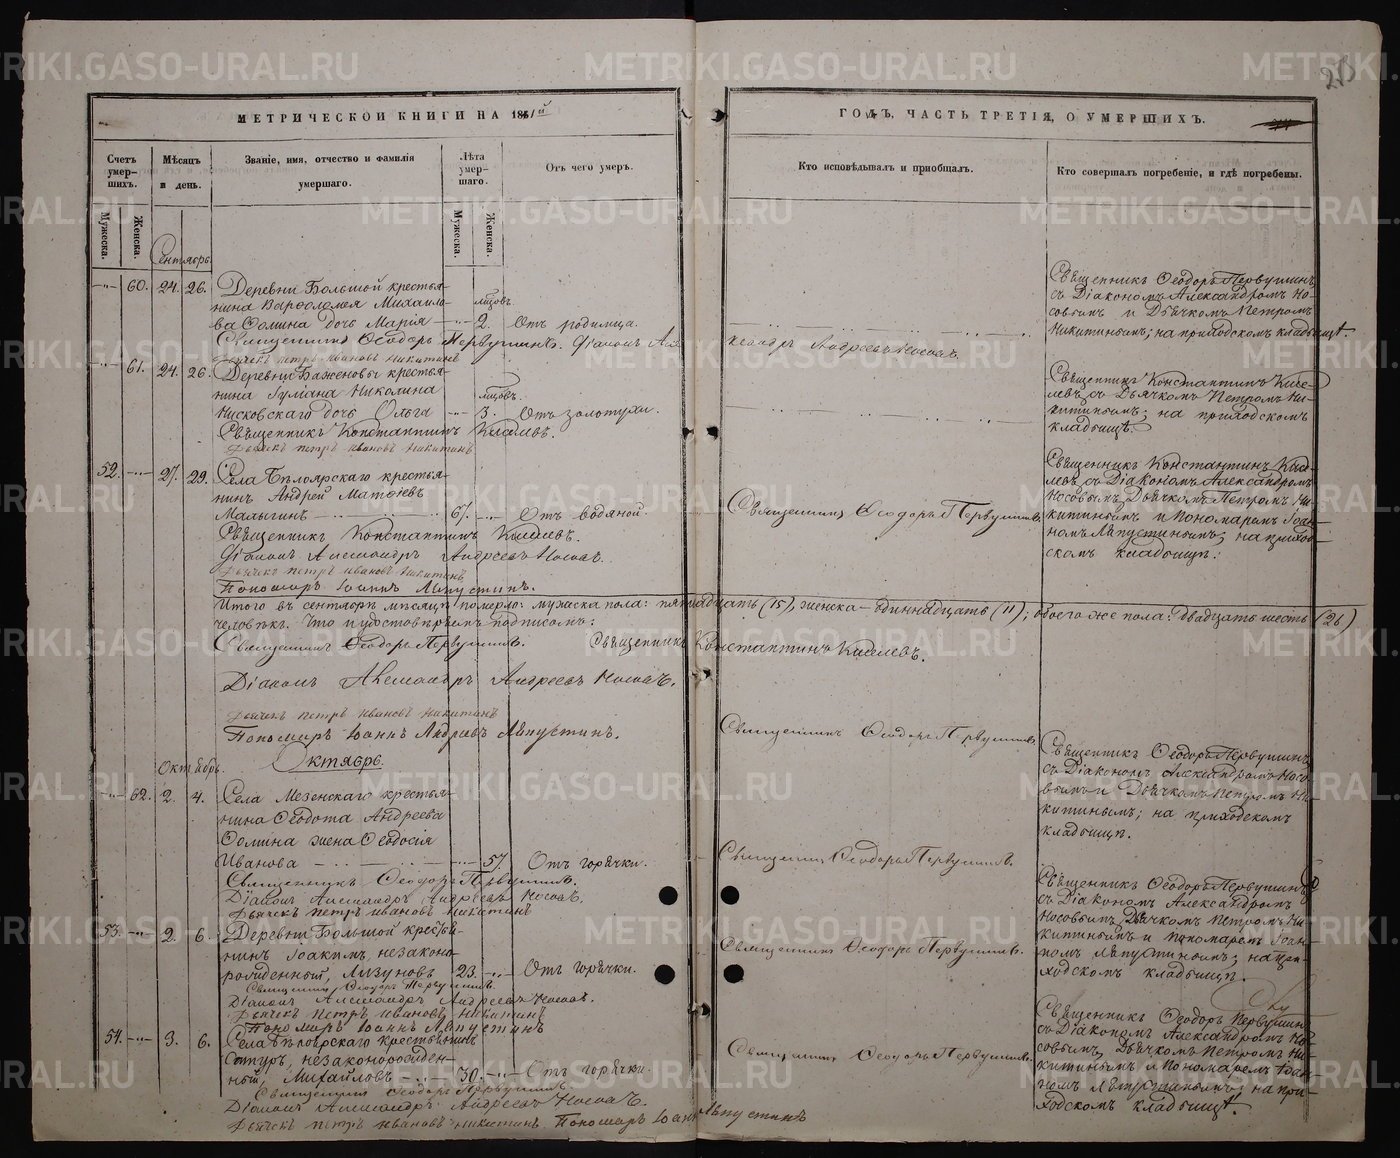 МЕТРИЧЕСКОЙ КНИГИ НА 1861й
ГОДЪ, ЧАСТЬ ТРЕТІЯ, О УМЕРШИХЪ.
Счетъ умер-шихъ.
Мѣсяцъ и день.
Званіе, имя, отчество и фамилія умершаго.
Лѣта умер-шаго.
Отъ чего умеръ.
Кто исповѣдывалъ и пріобщалъ.
Кто совершалъ погребеніе, и гдѣ погребены.
Мужеска.
Женска.
Мужеска.
Женска.
Сентябрь.
60. 24. 26. Деревни Большой крестья-
нина Варѳоломея Михаило-
ва Ѳомина дочь Марія 2. Отъ родимца.
Священникъ Ѳеодоръ Первушинъ. Діаконъ Александръ Андреевъ Носовъ.
Дьячекъ Петръ Ивановъ Никитинъ
Священникъ Ѳеодоръ Первушинъ
съ Діакономъ Александромъ Но-
совымъ и Дьячкомъ Петромъ
Никитинымъ; на приходскомъ кладбищѣ.
61. 24. 26. Деревни Баженовы крестья-
нина Николина
дочь Ольга 3. Отъ золотухи.
Священникъ Константинъ Киселевъ.
Дьячекъ Петръ Ивановъ Никитинъ
Священникъ Константинъ Кисе-
левъ съ Дьячкомъ Петромъ Ни-
китинымъ; на приходскомъ
кладбищѣ.
52. 27. 29. Села Бѣлоярскаго крестья-
нинъ Андрей Матѳіевъ
Малыгинъ 67. Отъ водяной.
Священникъ Константинъ Киселевъ.
Діаконъ Александръ Андреевъ Носовъ.
Дьячекъ Петръ Ивановъ Никитинъ
Пономарь Іоаннъ Ляпустинъ.
Священникъ Ѳеодоръ Первушинъ
Священникъ Константинъ Кисе-
левъ съ Діакономъ Александромъ
Носовымъ, Дьячкомъ Петромъ Ни-
китинымъ и Пономаремъ Іоан-
номъ Ляпустинымъ; на приход-
скомъ кладбищѣ.
Итого въ сентябрѣ мѣсяцѣ померло: мужеска пола: пятнадцать (15), женска – одиннадцать (11); обоего же пола: двадцать шесть (26)
человѣкъ. Что и удостовѣряемъ подписомъ:
Священникъ Ѳеодоръ Первушинъ. Священникъ Константинъ Киселевъ.
Діаконъ Александръ Андреевъ Носовъ.
Дьячекъ Петръ Ивановъ Никитинъ
Пономарь Іоаннъ Андреевъ Ляпустинъ.
Октябрь. Октябрь.
62. 2. 4. Села Мезенскаго крестья-
нина Ѳедота Андреева
Ѳомина жена Ѳеодосія
Иванова 57. Отъ горячки.
Священникъ Ѳеодоръ Первушинъ.
Діаконъ Александръ Андреевъ Носовъ.
Дьячекъ Петръ Ивановъ Никитинъ
Священникъ Ѳеодоръ Первушинъ
Священникъ Ѳеодоръ Первушинъ
съ Діакономъ Александромъ Носо-
вымъ и Дьячкомъ Петромъ Ни-
китинымъ; на приходскомъ
кладбищѣ.
Священникъ Ѳеодоръ Первушинъ.
53. 2. 6. Деревни Большой крестья-
нинъ Іоакимъ, незаконо-
рожденный, Лизуновъ 23. Отъ горячки.
Священникъ Ѳеодоръ Первушинъ
Діаконъ Александръ Андреевъ Носовъ.
Дьячекъ Петръ Ивановъ Никитинъ
Пономарь Іоаннъ Ляпустинъ
Священникъ Ѳеодоръ Первушинъ
Священникъ Ѳеодоръ Первушинъ
съ Діакономъ Александромъ
Носовымъ, Дьячкомъ Петромъ Ни-
китинымъ и Пономаремъ Іоан-
номъ Ляпустинымъ; на при-
ходскомъ кладбищѣ.
54. 3. 6. Села Бѣлоярскаго крестьянинъ
незаконорожден-
ный, Михайловъ 30. Отъ горячки.
Священникъ Ѳеодоръ Первушинъ
Діаконъ Александръ Андреевъ Носовъ.
Дьячекъ Петръ Ивановъ Никитинъ. Пономарь Іоаннъ Ляпустинъ
Священникъ Ѳеодоръ Первушинъ.
Священникъ Ѳеодоръ Первушинъ
съ Діакономъ Александромъ Но-
совымъ, Дьячкомъ Петромъ Ни-
китинымъ и Пономаремъ Іоан-
номъ Ляпустинымъ; на при-
ходскомъ кладбищѣ.
METRIKI.GASO-URAL.RU